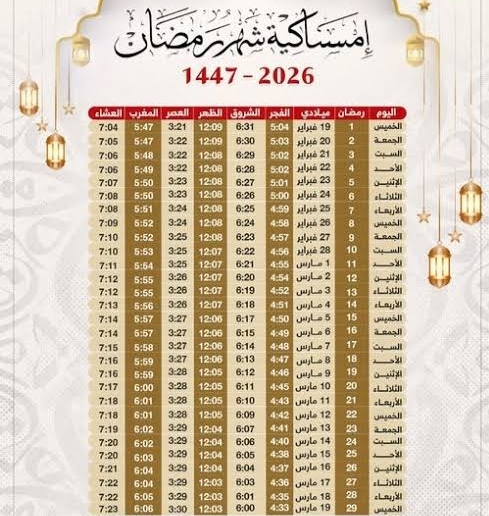 إمساكية شهر رمضان
1447 - 2026
اليوم رمضان ميلادي الفجر الشروق الظهر العصر المغرب العشاء
الخميس 1 19 فبراير 5:04 6:31 12:09 3:21 5:47 7:04
الجمعة 2 20 فبراير 5:03 6:30 12:09 3:22 5:47 7:05
السبت 3 21 فبراير 5:02 6:29 12:08 3:22 5:48 7:06
الأحد 4 22 فبراير 5:02 6:28 12:08 3:22 5:49 7:06
الإثنين 5 23 فبراير 5:01 6:27 12:08 3:23 5:50 7:07
الثلاثاء 6 24 فبراير 5:00 6:26 12:08 3:23 5:50 7:08
الأربعاء 7 25 فبراير 4:59 6:25 12:08 3:24 5:51 7:08
الخميس 8 26 فبراير 4:58 6:24 12:08 3:24 5:52 7:09
الجمعة 9 27 فبراير 4:57 6:23 12:08 3:25 5:52 7:10
السبت 10 28 فبراير 4:56 6:22 12:07 3:25 5:53 7:10
الأحد 11 1 مارس 4:55 6:21 12:07 3:25 5:54 7:11
الإثنين 12 2 مارس 4:54 6:20 12:07 3:26 5:55 7:12
الثلاثاء 13 3 مارس 4:52 6:19 12:07 3:26 5:55 7:12
الأربعاء 14 4 مارس 4:51 6:18 12:07 3:26 5:56 7:13
الخميس 15 5 مارس 4:50 6:17 12:06 3:27 5:57 7:14
الجمعة 16 6 مارس 4:49 6:15 12:06 3:27 5:57 7:14
السبت 17 7 مارس 4:48 6:14 12:06 3:27 5:58 7:15
الأحد 18 8 مارس 4:47 6:13 12:06 3:27 5:59 7:16
الإثنين 19 9 مارس 4:46 6:12 12:05 3:28 5:59 7:16
الثلاثاء 20 10 مارس 4:45 6:11 12:05 3:28 6:00 7:17
الأربعاء 21 11 مارس 4:43 6:10 12:05 3:28 6:01 7:18
الخميس 22 12 مارس 4:42 6:09 12:05 3:28 6:01 7:18
الجمعة 23 13 مارس 4:41 6:07 12:04 3:29 6:02 7:19
السبت 24 14 مارس 4:40 6:06 12:04 3:29 6:02 7:20
الأحد 25 15 مارس 4:38 6:05 12:04 3:29 6:03 7:20
الإثنين 26 16 مارس 4:37 6:04 12:04 3:29 6:04 7:21
الثلاثاء 27 17 مارس 4:36 6:03 12:03 3:29 6:04 7:22
الأربعاء 28 18 مارس 4:35 6:01 12:03 3:29 6:05 7:22
الخميس 29 19 مارس 4:33 6:00 12:03 3:30 6:06 7:23